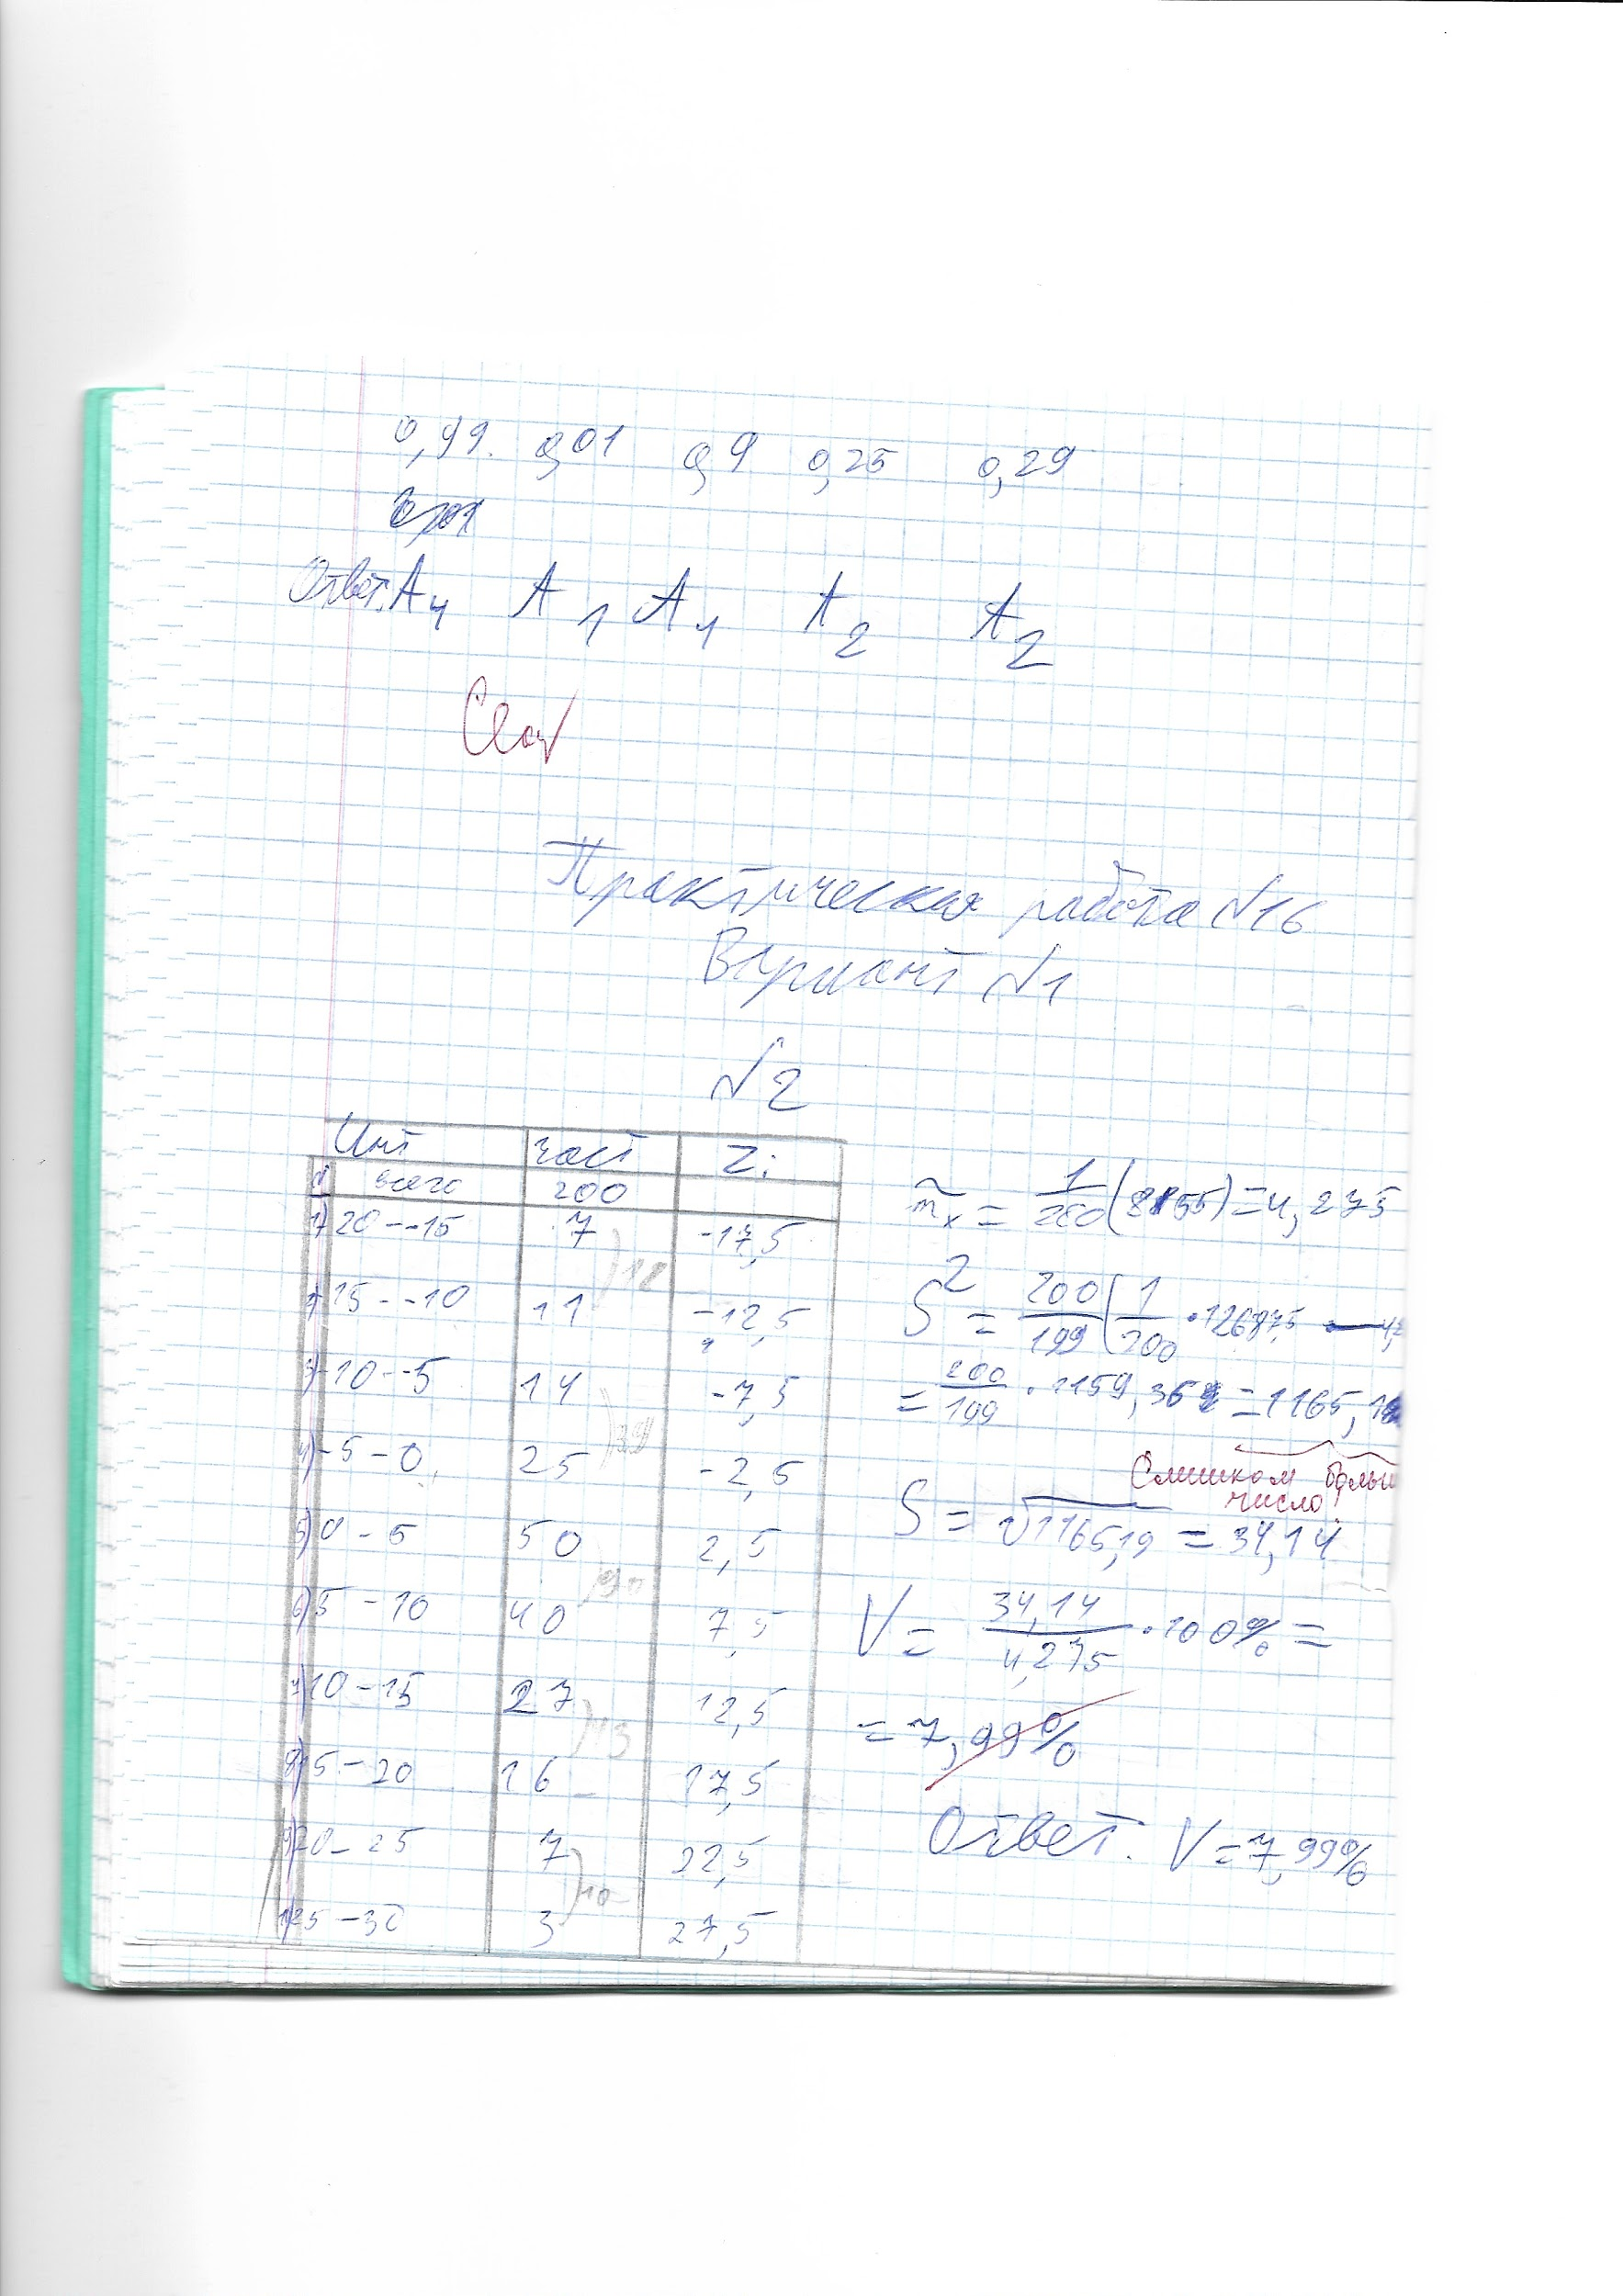 0,99. 0,01 0,9 0,25 0,29
Ответ. А4 А1 А1 А2 А2
Практическая работа №16
Вариант №1
№2
Инт част Zi
№ всего 200
1) 20--15 7 -17,5
-15--10 11 -12,5
3) -10--5 14 -7,5
4) -5-0 25 -2,5
5) 0-5 50 2,5
6) 5-10 40 7,5
10-15 27 12,5
15-20 16 17,5
20-25 7 22,5
25-30 3 27,5
18
39
90
43
10
m̃x = 1/200 (855) = 4,275
S² = 200/199 (1/200 · 126875 -
= 200/199 · 1159,36 = 1165,1
Слишком больш
число!
S = √1165,19 = 34,14
V = 34,14/4,275 · 100% =
= 7,99%
Ответ. V = 7,99%